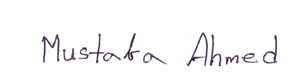 Mustafa Ahmed